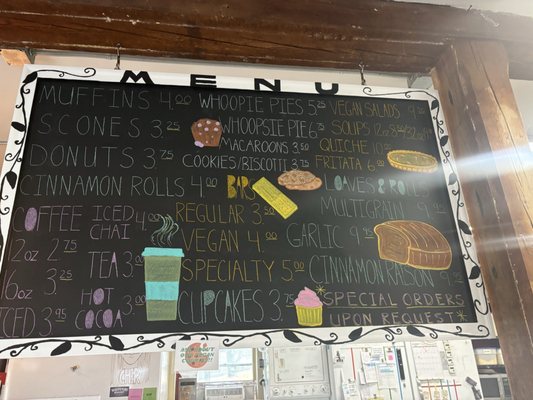 MENU
MUFFINS 4.00
SCONES 3.75
DONUTS 3.75
CINNAMON ROLLS 4.00
COFFEE
2oz 2.75
16oz 3.25
ICED 3.95
ICED CHAI 4.00
TEA 3.00
HOT COCOA 3.00
WHOOPIE PIES 5.25
WHOOPSIE PIE
MACAROONS 3.50
COOKIES/BISCOTTI 3.75
BARS
REGULAR 3.50
VEGAN 4.00
SPECIALTY 5.00
CUPCAKES 3.75
VEGAN SALADS
SOUPS
QUICHE
FRITATA
LOAVES & ROLLS
MULTIGRAIN
GARLIC
CINNAMON RAISON
SPECIAL ORDERS
UPON REQUEST *